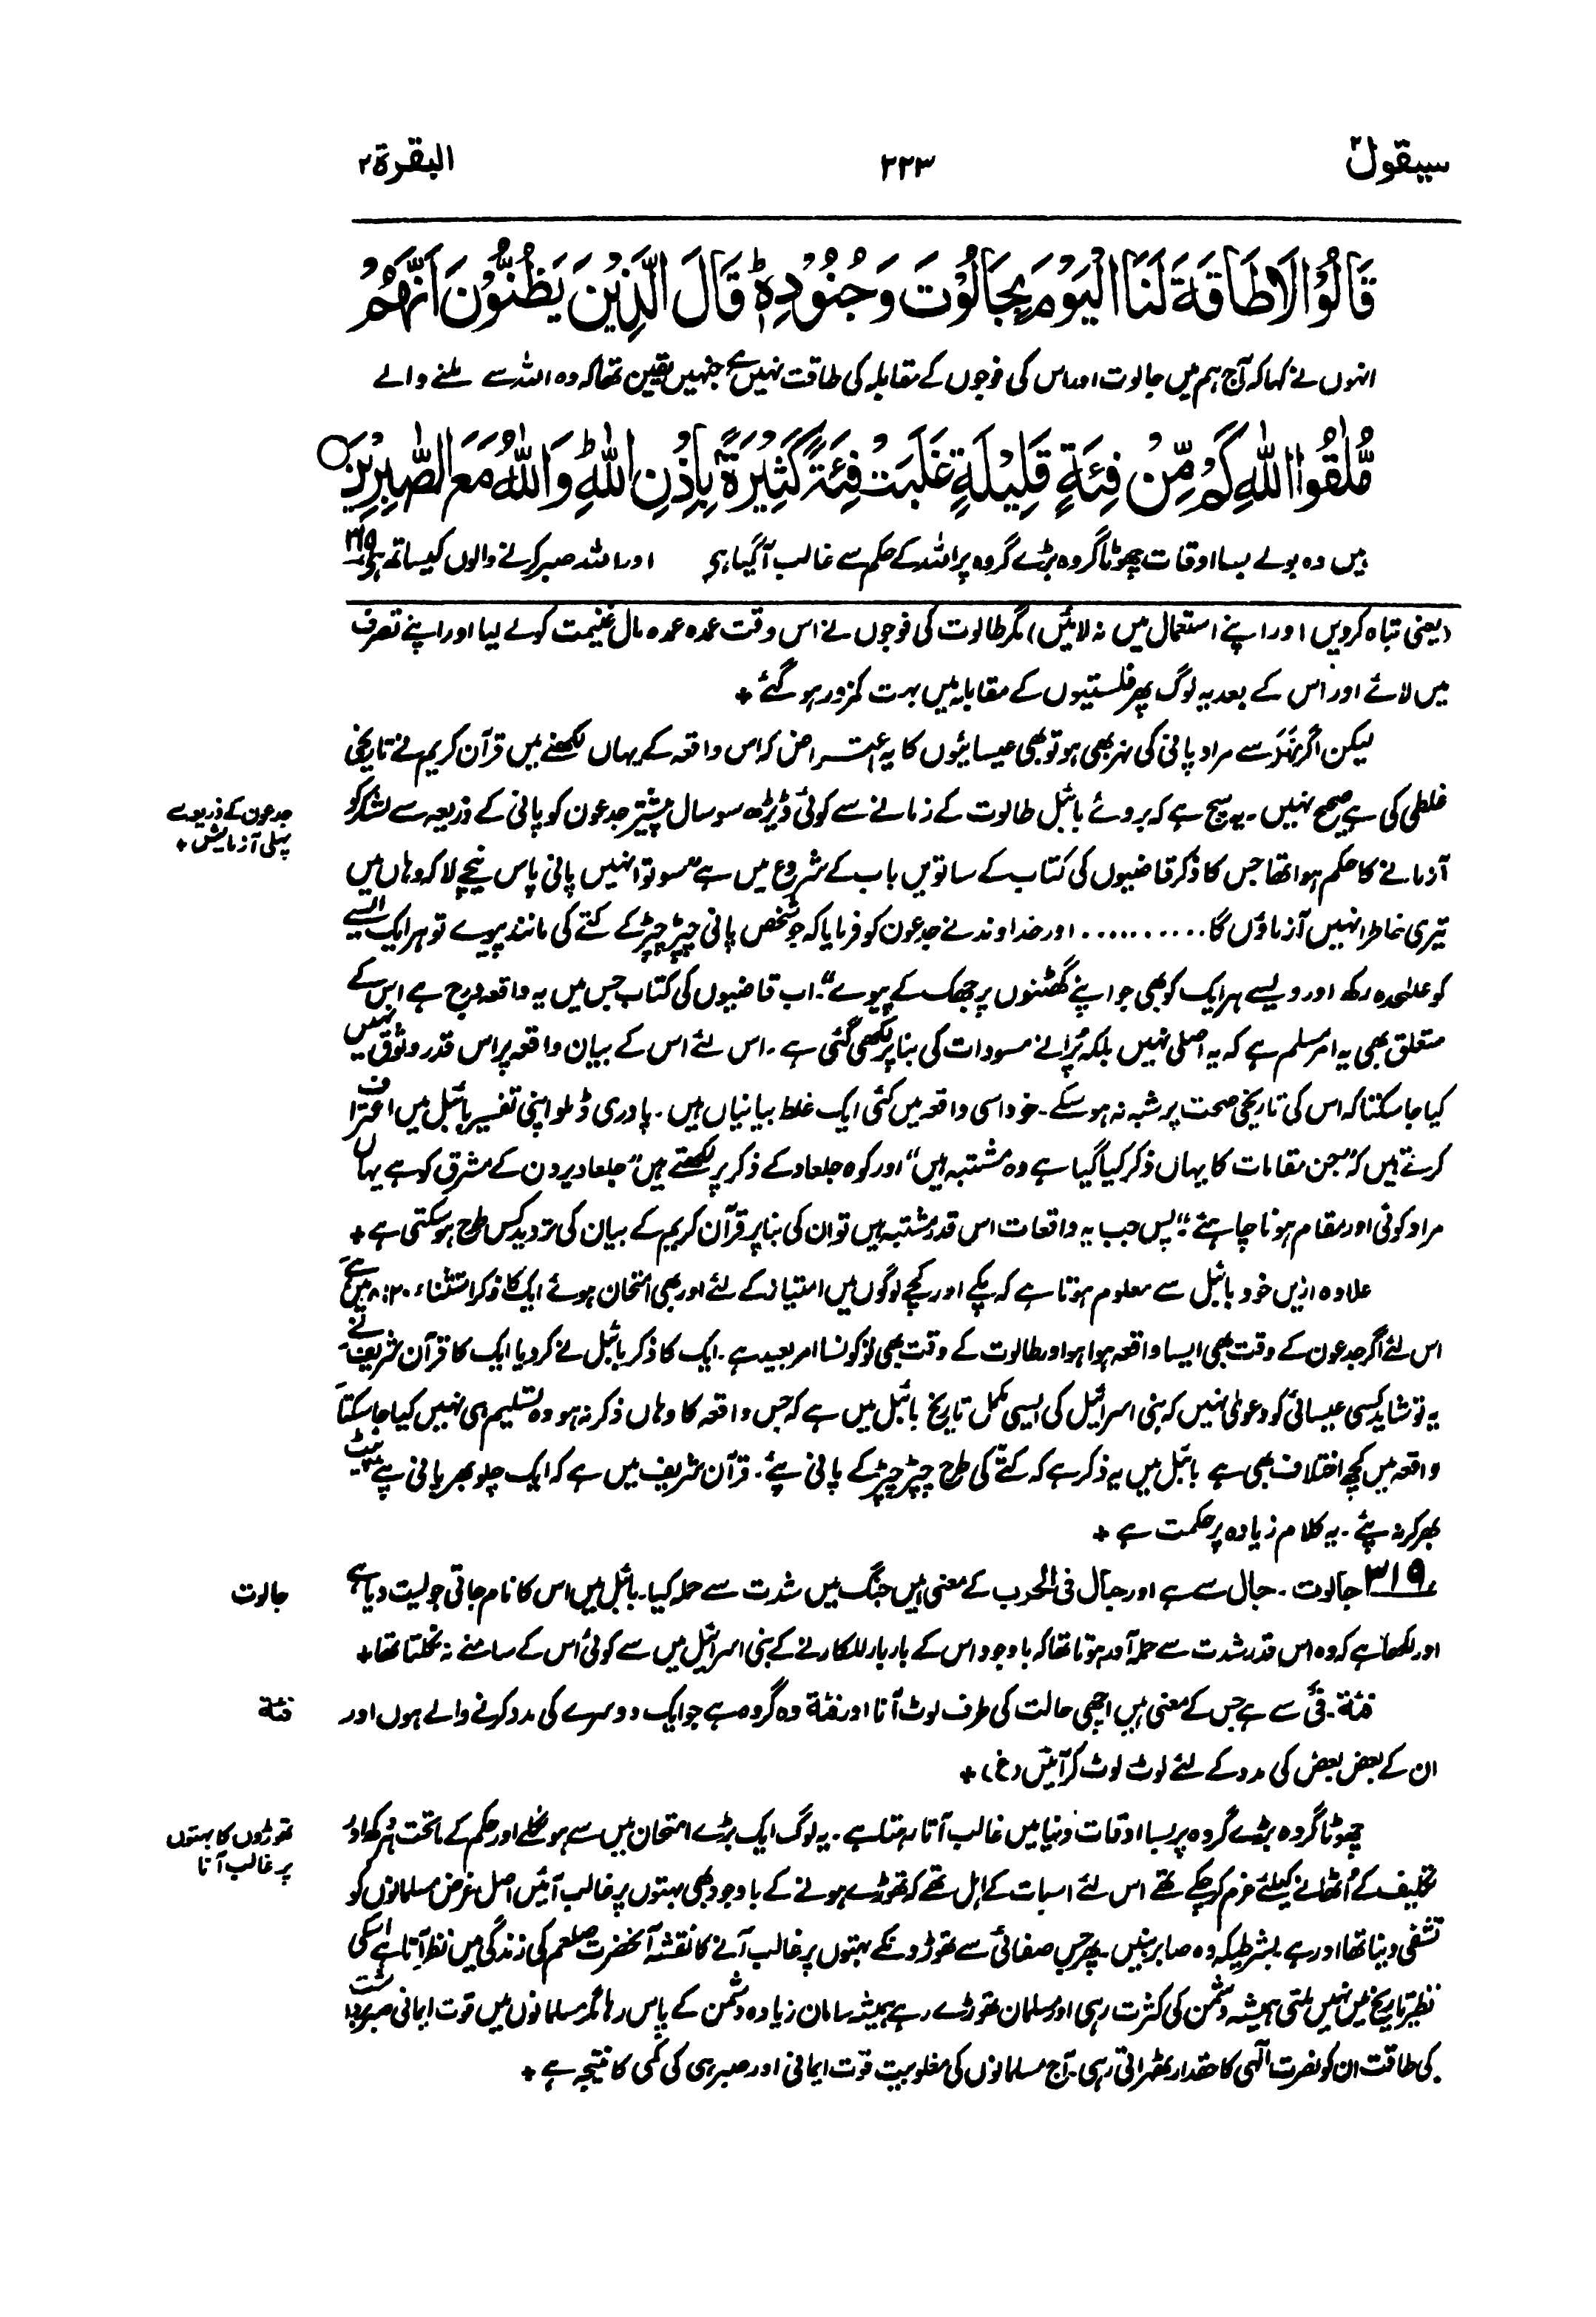 سیقول ۲
۲۲۳
البقرة ۲
قَالُوْا لَا طَاقَةَ لَنَا الْیَوْمَ بِجَالُوْتَ وَجُنُوْدِهٖ ؕ قَالَ الَّذِیْنَ یَظُنُّوْنَ اَنَّهُمْ
انہوں نے کہا کہ آج ہم میں جالوت اور اس کی فوجوں کے مقابلہ کی طاقت نہیں ہے جنہیں یقین تھا کہ وہ اللہ سے ملنے والے
مُّلٰقُوا اللّٰهِ کَمْ مِّنْ فِئَةٍ قَلِیْلَةٍ غَلَبَتْ فِئَةً کَثِیْرَةًۢ بِاِذْنِ اللّٰهِ ؕ وَاللّٰهُ مَعَ الصّٰبِرِیْنَ ○
ہیں وہ بولے بسا اوقات چھوٹا گروہ بڑے گروہ پر اللہ کے حکم سے غالب آگیا ہے اور اللہ صبر کرنے والوں کیساتھ ہے ۳۱۹
(یعنی تباہ کردیں اور اپنے استعمال میں نہ لائیں) مگر طالوت کی فوجوں نے اس وقت عمدہ عمدہ مال غنیمت کو لے لیا اور اپنے تصرف
میں لائے اور اس کے بعد یہ لوگ پھر فلستیوں کے مقابلہ میں بہت کمزور ہو گئے +
لیکن اگر نَهَر سے مراد پانی کی نہر بھی ہو تو بھی عیسائیوں کا یہ اعتراض کہ اس واقعہ کے یہاں لکھنے میں قرآن کریم نے تاریخی
غلطی کی ہے صحیح نہیں ۔ یہ سچ ہے کہ بروئے بائبل طالوت کے زمانے سے کوئی ڈیڑھ سو سال پیشتر جدعون کو پانی کے ذریعہ سے لشکر کو
جدعون کے ذریعہ سے
پہلی آزمایش +
آزمانے کا حکم ہوا تھا جس کا ذکر قاضیوں کی کتاب کے ساتویں باب کے شروع میں ہے ”سو تو انہیں پانی پاس نیچے لا کہ وہاں میں
تیری خاطر انہیں آزماؤں گا .......... اور خداوند نے جدعون کو فرمایا کہ جو شخص پانی چپڑ چپڑ کے کتے کی مانند پیوے تو ہر ایک ایسے
کو علیٰحدہ رکھ اور ویسے ہر ایک کو بھی جو اپنے گھٹنوں پر جھک کے پیوے“۔ اب قاضیوں کی کتاب جس میں یہ واقعہ درج ہے اس کے
متعلق بھی یہ امر مسلم ہے کہ یہ اصلی نہیں بلکہ پُرانے مسودات کی بنا پر لکھی گئی ہے ۔ اس لئے اس کے بیان واقعہ پر اس قدر وثوق نہیں
کیا جاسکتا کہ اس کی تاریخی صحت پر شبہ نہ ہوسکے ۔ خود اسی واقعہ میں کئی ایک غلط بیانیاں ہیں ۔ پادری ڈملو اپنی تفسیر بائبل میں اعتراف
کرتے ہیں کہ ”جن مقامات کا یہاں ذکر کیا گیا ہے وہ مشتبہ ہیں“ اور کوہ جلعاد کے ذکر پر لکھتے ہیں ”جلعاد یردن کے مشرق کو ہے یہاں
مراد کوئی اور مقام ہونا چاہئے“ پس جب یہ واقعات اس قدر مشتبہ ہیں تو ان کی بنا پر قرآن کریم کے بیان کی تردید کس طرح ہوسکتی ہے +
علاوہ ازیں خود بائبل سے معلوم ہوتا ہے کہ پکے اور کچے لوگوں میں امتیاز کے لئے اور بھی امتحان ہوئے ایک کا ذکر استثناء ۲۰:۸ میں ہے
اس لئے اگر جدعون کے وقت بھی ایسا واقعہ ہوا ہو اور طالوت کے وقت بھی تو کونسا امر بعید ہے ۔ ایک کا ذکر بائبل نے کردیا ایک کا قرآن شریف نے
یہ تو شاید کسی عیسائی کو دعویٰ نہیں کہ بنی اسرائیل کی ایسی مکمل تاریخ بائبل میں ہے کہ جس واقعہ کا وہاں ذکر نہ ہو وہ تسلیم ہی نہیں کیا جاسکتا
واقعہ میں کچھ اختلاف بھی ہے بائبل میں یہ ذکر ہے کہ کتے کی طرح چپڑ چپڑ کے پانی پئے ۔ قرآن شریف میں ہے کہ ایک چلو بھر پانی پئے پیٹ
بھر کر نہ پئے ۔ یہ کلام زیادہ پر حکمت ہے +
۳۱۹ جالوت ۔ جال سے ہے اور جال فی الحرب کے معنی ہیں جنگ میں شدت سے حملہ کیا ۔ بائبل میں اس کا نام جاتی جولیت دیا ہے
جالوت
اور لکھا ہے کہ وہ اس قدر شدت سے حملہ آور ہوتا تھا کہ باوجود اس کے بار بار للکارنے کے بنی اسرائیل میں سے کوئی اس کے سامنے نہ نکلتا تھا +
فئة ۔ فئ سے ہے جس کے معنی ہیں اچھی حالت کی طرف لوٹ آنا اور فئة وہ گروہ ہے جو ایک دوسرے کی مدد کرنے والے ہوں اور
فئة
ان کے بعض بعض کی مدد کے لئے لوٹ لوٹ کر آئیں (غ) +
چھوٹا گروہ بڑے گروہ پر بسا اوقات دنیا میں غالب آتا رہتا ہے ۔ یہ لوگ ایک بڑے امتحان میں سے ہو نکلے اور حکم کے ماتحت ہر دکھ اور
تھوڑوں کا بہتوں
پر غالب آنا
تکلیف کے اُٹھانے کیلئے عزم کرچکے تھے اس لئے اسبات کے اہل تھے کہ تھوڑے ہونے کے باوجود بھی بہتوں پر غالب آئیں اصل غرض مسلمانوں کو
تشفی دینا تھا اور ہے بشرطیکہ وہ صابر بنیں ۔ پھر جس صفائی سے تھوڑونکے بہتوں پر غالب آنے کا نقشہ آنحضرت صلعم کی زندگی میں نظر آتا ہے اسکی
نظیر تاریخ میں نہیں ملتی ہمیشہ دشمن کی کثرت رہی اور مسلمان تھوڑے رہے ہمیشہ سامان زیادہ دشمن کے پاس رہا مگر مسلمانوں میں قوت ایمانی صبر برداشت
کی طاقت ان کو نصرت الٰہی کا حقدار ٹھہراتی رہی ۔ آج مسلمانوں کی مغلوبیت قوت ایمانی اور صبر ہی کی کمی کا نتیجہ ہے +